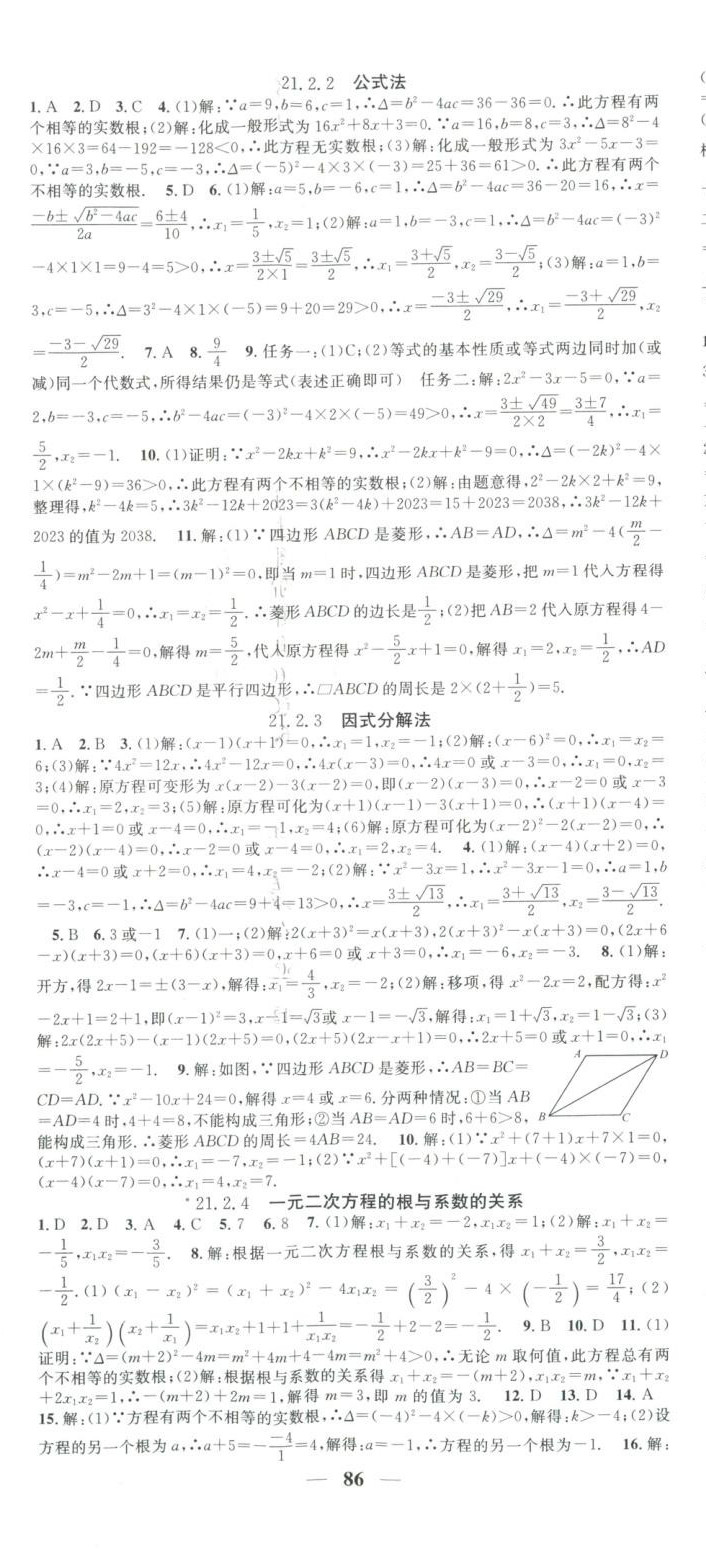 21.2.2 公式法
1. A 2. D 3. C 4. (1)解:∵a=9,b=6,c=1,∴Δ=b²-4ac=36-36=0.∴此方程有两
个相等的实数根;(2)解:化成一般形式为 16x²+8x+3=0.∵a=16,b=8,c=3,∴Δ=8²-4
×16×3=64-192=-128<0,∴此方程无实数根;(3)解:化成一般形式为 3x²-5x-3=
0,∵a=3,b=-5,c=-3,∴Δ=(-5)²-4×3×(-3)=25+36=61>0.∴此方程有两个
不相等的实数根. 5. D 6. (1)解:a=5,b=-6,c=1,∴Δ=b²-4ac=36-20=16,∴x=
(-b±√(b²-4ac))/2a=(6±4)/10,∴x₁=1/5,x₂=1;(2)解:a=1,b=-3,c=1,∴Δ=b²-4ac=(-3)²
-4×1×1=9-4=5>0,∴x=(3±√5)/(2×1)=(3±√5)/2,∴x₁=(3+√5)/2,x₂=(3-√5)/2;(3)解:a=1,b=
3,c=-5,∴Δ=3²-4×1×(-5)=9+20=29>0,∴x=(-3±√29)/2,∴x₁=(-3+√29)/2,x₂
=(-3-√29)/2. 7. A 8. 9/4 9. 任务一:(1)C;(2)等式的基本性质或等式两边同时加(或
减)同一个代数式,所得结果仍是等式(表述正确即可) 任务二:解:2x²-3x-5=0,∵a=
2,b=-3,c=-5,∴b²-4ac=(-3)²-4×2×(-5)=49>0,∴x=(3±√49)/(2×2)=(3±7)/4,∴x₁=
5/2,x₂=-1. 10. (1)证明:∵x²-2kx+k²=9,∴x²-2kx+k²-9=0,∴Δ=(-2k)²-4×
1×(k²-9)=36>0,∴此方程有两个不相等的实数根;(2)解:由题意得,2²-2k×2+k²=9,
整理得,k²-4k=5,∴3k²-12k+2023=3(k²-4k)+2023=15+2023=2038,∴3k²-12k+
2023 的值为 2038. 11. 解:(1)∵四边形 ABCD 是菱形,∴AB=AD,∴Δ=m²-4(m/2-
1/4)=m²-2m+1=(m-1)²=0,即当 m=1 时,四边形 ABCD 是菱形,把 m=1 代入方程得
x²-x+1/4=0,∴x₁=x₂=1/2.∴菱形 ABCD 的边长是1/2;(2)把 AB=2 代入原方程得 4-
2m+m/2-1/4=0,解得 m=5/2,代入原方程得 x²-5/2x+1=0,解得 x₁=2,x₂=1/2,∴AD
=1/2.∵四边形 ABCD 是平行四边形,∴□ABCD 的周长是 2×(2+1/2)=5.
21.2.3 因式分解法
1. A 2. B 3. (1)解:(x-1)(x+1)=0,∴x₁=1,x₂=-1;(2)解:(x-6)²=0,∴x₁=x₂=
6;(3)解:∵4x²=12x,∴4x²-12x=0,∴4x(x-3)=0,∴4x=0 或 x-3=0,∴x₁=0,x₂=
3;(4)解:原方程可变形为 x(x-2)-3(x-2)=0,即(x-2)(x-3)=0,∴x-2=0 或 x-3
=0,∴x₁=2,x₂=3;(5)解:原方程可化为(x+1)(x-1)-3(x+1)=0,∴(x+1)(x-4)=
0,∴x+1=0 或 x-4=0,∴x₁=-1,x₂=4;(6)解:原方程可化为(x-2)²-2(x-2)=0,∴
(x-2)(x-4)=0,∴x-2=0 或 x-4=0,∴x₁=2,x₂=4. 4. (1)解:(x-4)(x+2)=0,
∴x-4=0 或 x+2=0,∴x₁=4,x₂=-2;(2)解:∵x²-3x=1,∴x²-3x-1=0,∴a=1,b
=-3,c=-1,∴Δ=b²-4ac=9+4=13>0,∴x=(3±√13)/2,∴x₁=(3+√13)/2,x₂=(3-√13)/2.
5. B 6. 3 或-1 7. (1)一;(2)解:2(x+3)²=x(x+3),2(x+3)²-x(x+3)=0,(2x+6
-x)(x+3)=0,(x+6)(x+3)=0,x+6=0 或 x+3=0,∴x₁=-6,x₂=-3. 8. (1)解:
开方,得 2x-1=±(3-x),解得:x₁=4/3,x₂=-2;(2)解:移项,得 x²-2x=2,配方得:x²
-2x+1=2+1,即(x-1)²=3,x-1=√3或 x-1=-√3,解得:x₁=1+√3,x₂=1-√3;(3)
解:2x(2x+5)-(x-1)(2x+5)=0,(2x+5)(2x-x+1)=0,∴2x+5=0 或 x+1=0,∴x₁
=-5/2,x₂=-1. 9. 解:如图,∵四边形 ABCD 是菱形,∴AB=BC=
A D
CD=AD.∵x²-10x+24=0,解得 x=4 或 x=6.分两种情况:①当 AB
=AD=4 时,4+4=8,不能构成三角形;②当 AB=AD=6 时,6+6>8,
B C
能构成三角形.∴菱形 ABCD 的周长=4AB=24. 10. 解:(1)∵x²+(7+1)x+7×1=0,
(x+7)(x+1)=0,∴x₁=-7,x₂=-1;(2)∵x²+[(-4)+(-7)]x+(-4)×(-7)=0,
(x-4)(x-7)=0,∴x₁=4,x₂=7.
21.2.4 一元二次方程的根与系数的关系
1. D 2. D 3. A 4. C 5. 7 6. 8 7. (1)解:x₁+x₂=-2,x₁x₂=1;(2)解:x₁+x₂=
-1/5,x₁x₂=-3/5. 8. 解:根据一元二次方程根与系数的关系,得 x₁+x₂=3/2,x₁x₂=
-1/2.(1)(x₁-x₂)²=(x₁+x₂)²-4x₁x₂=(3/2)²-4×(-1/2)=17/4;(2)
(x₁+1/x₂)(x₂+1/x₁)=x₁x₂+1+1+1/x₁x₂=-1/2+2-2=-1/2. 9. B 10. D 11. (1)
证明:∵Δ=(m+2)²-4m=m²+4m+4-4m=m²+4>0,∴无论 m 取何值,此方程总有两
个不相等的实数根;(2)解:根据根与系数的关系得 x₁+x₂=-(m+2),x₁x₂=m,∵x₁+x₂
+2x₁x₂=1,∴-(m+2)+2m=1,解得 m=3,即 m 的值为 3. 12. D 13. D 14. A
15. 解:(1)∵方程有两个不相等的实数根,∴Δ=(-4)²-4×(-k)>0,解得:k>-4;(2)设
方程的另一个根为 a,∴a+5=-(-4)/1=4,解得:a=-1,∴方程的另一个根为-1. 16. 解:
— 86 —